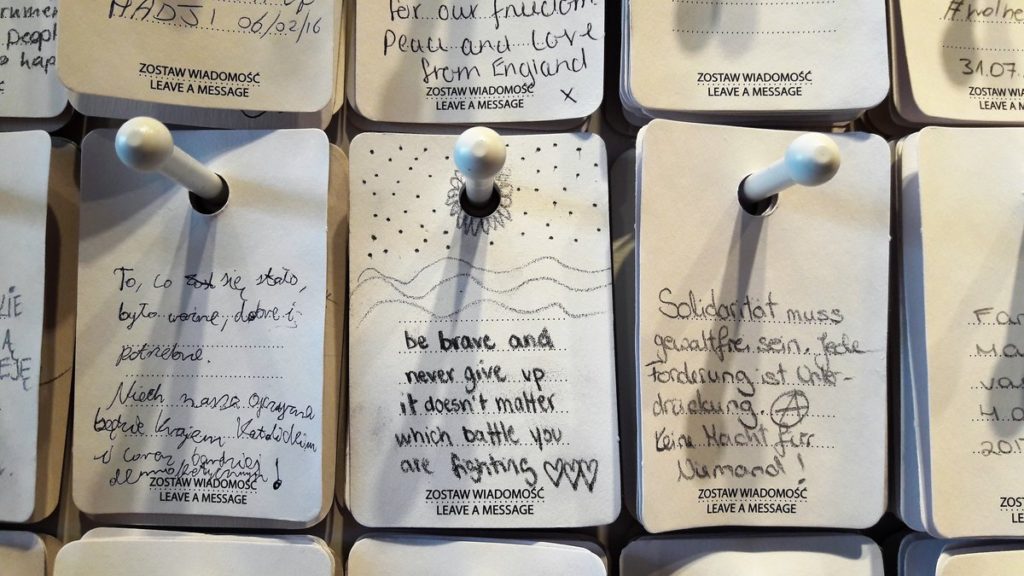 MADJI 06/02/16
ZOSTAW WIADOMOŚĆ
LEAVE A MESSAGE
for our freedom
Peace and Love
from England
x
ZOSTAW WIADOMOŚĆ
LEAVE A MESSAGE
ZOSTAW WIADOMOŚĆ
LEAVE A MESSAGE
31.07.
ZOSTAW
LEAVE A
people
To, co się stało,
było ważne, dobre i
potrzebne.
Niech nasza ojczyzna
będzie krajem Katolickim
i coraz bardziej
demokratycznym!
ZOSTAW WIADOMOŚĆ
LEAVE A MESSAGE
be brave and
never give up
it doesn't matter
which battle you
are fighting
ZOSTAW WIADOMOŚĆ
LEAVE A MESSAGE
Solidarität muss
gewaltfrei sein. Jede
Forderung ist Unter-
drückung. Ⓐ
Keine Macht für
Niemand!
ZOSTAW WIADOMOŚĆ
LEAVE A MESSAGE
ZOSTAW
LEAVE A